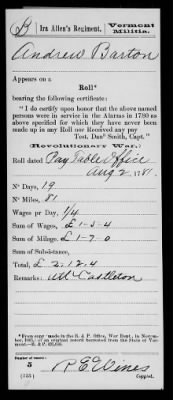 B | Ira Allen's Regiment, | Vermont Militia.
Andrew Barton
Appears on a
Roll*
bearing the following certificate:
"I do certify upon honor that the above named
persons were in service in the Alarms in 1780 as
above specified for which they have never been
made up in any Roll nor Received any pay
Test. Danl Smith, Capt."
(Revolutionary War.)
Roll dated Pay Table Office
Aug 2, 1781.
No Days, 19
No Miles, 81
Wages pr Day, 1/4
Sum of Wages, £1-5-4
Sum of Milage. £1-7-0
Sum of Subsistance,
Total, £2.12.4
Remarks:
*From copy made in the R. & P. Office, War Dept., in
of an original record borrowed from the State of
Number of
5
R E Vines
Copyist.